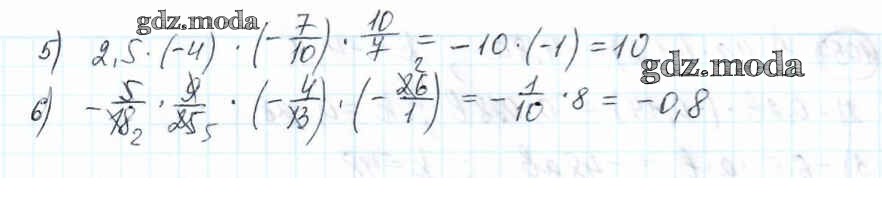 gdz.moda
5) 2,5·(-4)·(-7/10)·10/7 = -10·(-1) = 10
gdz.moda
6) -5/18 2·9/25 5·(-4/13)·(-26 2/1) = -1/10·8 = -0,8